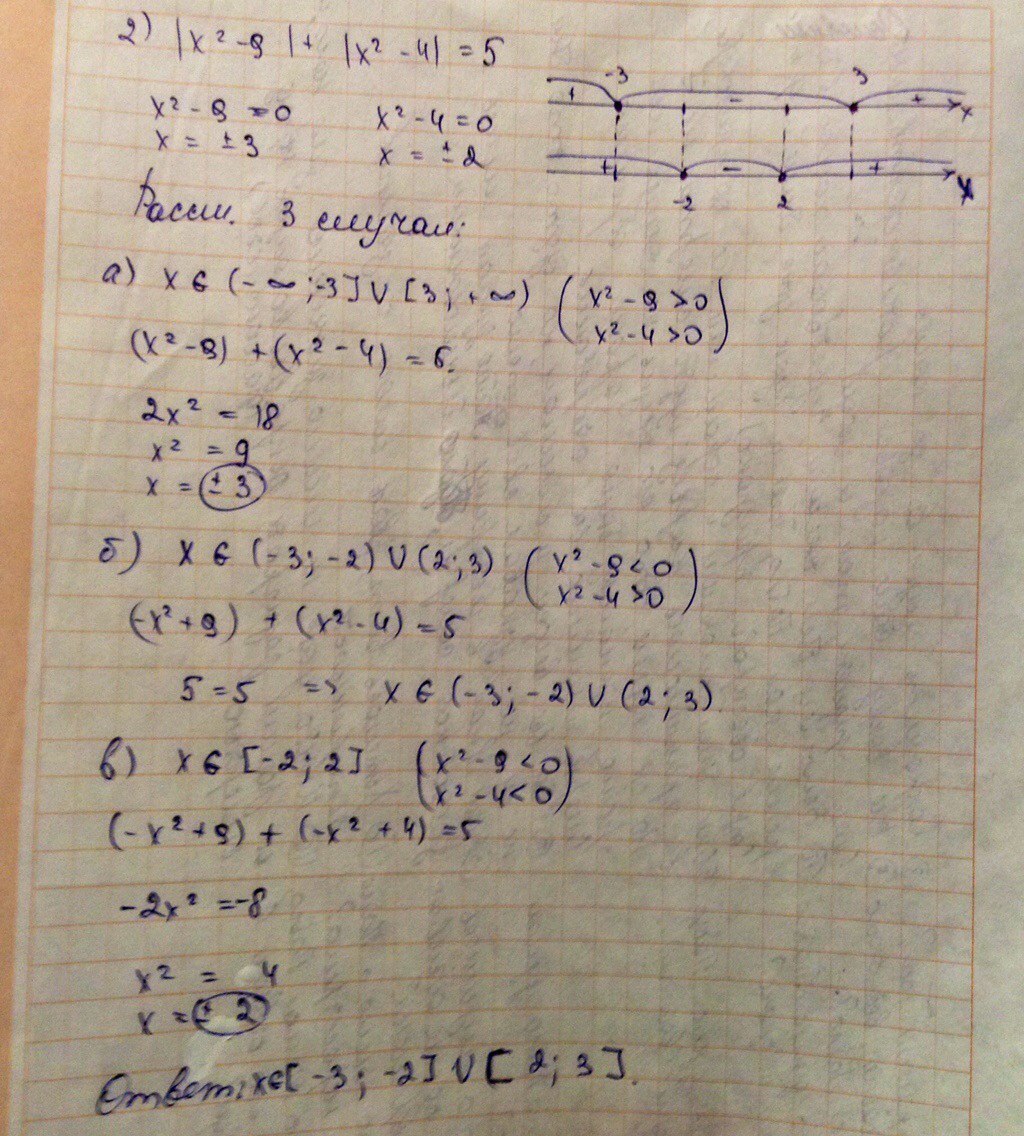 2) |x² - 9| + |x² - 4| = 5
x² - 9 = 0 x² - 4 = 0
x = ± 3 x = ± 2
-3 3
+ - + x
+ - + x
-2 2
Рассм. 3 случая:
а) x ∈ (-∞; -3] ∪ [3; +∞) (x² - 9 > 0
x² - 4 > 0)
(x² - 9) + (x² - 4) = 5.
2x² = 18
x² = 9
x = ± 3
б) x ∈ (-3; -2) ∪ (2; 3) (x² - 9 < 0
x² - 4 > 0)
(-x² + 9) + (x² - 4) = 5
5 = 5 => x ∈ (-3; -2) ∪ (2; 3).
в) x ∈ [-2; 2] (x² - 9 < 0
x² - 4 < 0)
(-x² + 9) + (-x² + 4) = 5
-2x² = -8
x² = 4
x = ± 2
Ответ: x ∈ [-3; -2] ∪ [2; 3].